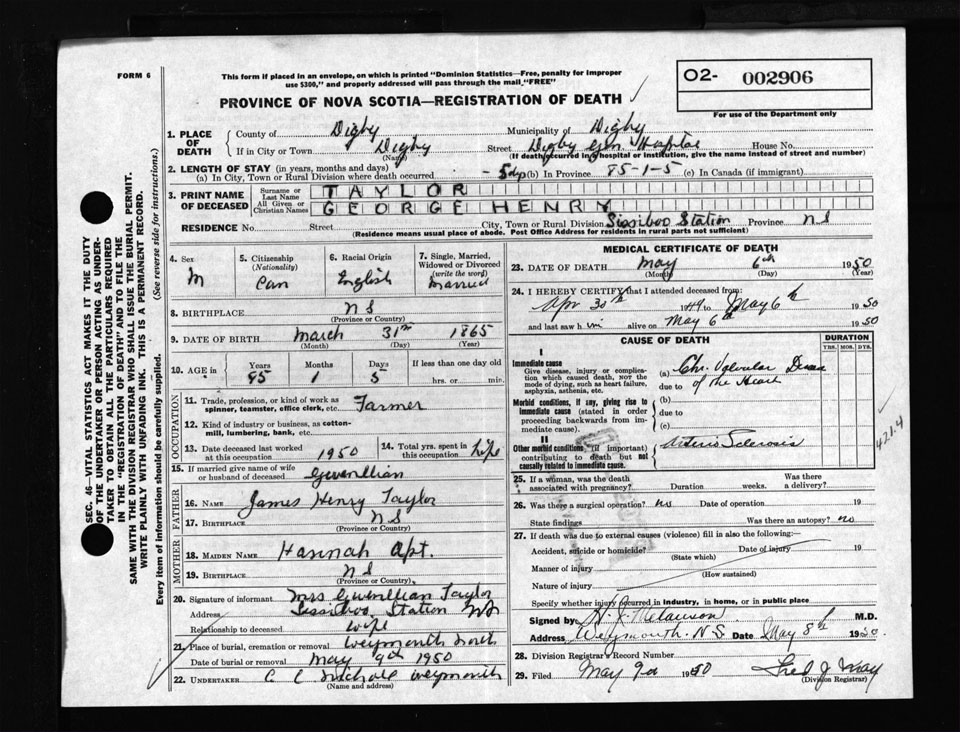 FORM 6
This form if placed in an envelope, on which is printed "Dominion Statistics—Free, penalty for improper
use $300," and properly addressed will pass through the mail "FREE"
O2- 002906
PROVINCE OF NOVA SCOTIA—REGISTRATION OF DEATH
For use of the Department only
1. PLACE OF DEATH
County of Digby Municipality of Digby
If in City or Town Digby Street Digby Gen. Hospital House No.
(Name) (If death occurred in a hospital or institution, give the name instead of street and number)
2. LENGTH OF STAY (in years, months and days)
(a) In City, Town or Rural Division where death occurred - 5 dys (b) In Province 85-1-5 (c) In Canada (if immigrant)
3. PRINT NAME OF DECEASED
Surname or Last Name TAYLOR
All Given or Christian Names GEORGE HENRY
RESIDENCE No. Street City, Town or Rural Division Sissiboo Station Province N S
(Residence means usual place of abode. Post Office Address for residents in rural parts not sufficient)
4. Sex M
5. Citizenship (Nationality) Can
6. Racial Origin English
7. Single, Married, Widowed or Divorced (write the word) Married
8. BIRTHPLACE N S
(Province or Country)
9. DATE OF BIRTH March 31st 1865
(Month) (Day) (Year)
10. AGE in Years Months Days If less than one day old
85 1 5 hrs. or min.
OCCUPATION
11. Trade, profession, or kind of work as spinner, teamster, office clerk, etc. Farmer
12. Kind of industry or business, as cotton-mill, lumbering, bank, etc.
13. Date deceased last worked at this occupation 1950
14. Total yrs. spent in this occupation Life
15. If married give name of wife or husband of deceased Gwenllian
FATHER
16. NAME James Henry Taylor
17. BIRTHPLACE N S
(Province or Country)
MOTHER
18. MAIDEN NAME Hannah Apt.
19. BIRTHPLACE N S
(Province or Country)
20. Signature of informant Mrs Gwenllian Taylor
Address Sissiboo Station N S
Relationship to deceased wife
21. Place of burial, cremation or removal Weymouth North
Date of burial or removal May 9th 1950
22. UNDERTAKER C C Nichols Weymouth
(Name and address)
MEDICAL CERTIFICATE OF DEATH
23. DATE OF DEATH May 6th 1950
(Month) (Day) (Year)
24. I HEREBY CERTIFY that I attended deceased from:
Apr 30th 1949 to May 6th 1950
and last saw him alive on May 6th 1950
CAUSE OF DEATH
DURATION
YRS. MOS. DYS.
I
Immediate cause
Give disease, injury or complication which caused death, not the mode of dying, such as heart failure, asphyxia, asthenia, etc.
(a) Chr. Valvular Disease
due to of the Heart
Morbid conditions, if any, giving rise to immediate cause (stated in order proceeding backwards from immediate cause).
(b)
due to
(c)
II
Other morbid conditions (if important) contributing to death but not causally related to immediate cause.
Arterio Sclerosis
421.4
25. If a woman, was the death associated with pregnancy? Duration weeks. Was there a delivery?
26. Was there a surgical operation? no Date of operation 19
State findings Was there an autopsy? no
27. If death was due to external causes (violence) fill in also the following:—
Accident, suicide or homicide? Date of injury 19
(State which)
Manner of injury
(How sustained)
Nature of injury
Specify whether injury occurred in industry, in home, or in public place
Signed by H. J. Melanson M.D.
Address Weymouth. N.S. Date May 8th 1950.
28. Division Registrar's Record Number
29. Filed May 9th 1950 Fred J
(Division Registrar)
SEC. 46—VITAL STATISTICS ACT MAKES IT THE DUTY
OF THE UNDERTAKER OR PERSON ACTING AS UNDER-
TAKER TO OBTAIN ALL THE PARTICULARS REQUIRED
IN THE "REGISTRATION OF DEATH" AND TO FILE THE
SAME WITH THE DIVISION REGISTRAR WHO SHALL ISSUE THE BURIAL PERMIT.
WRITE PLAINLY WITH UNFADING INK. THIS IS A PERMANENT RECORD.
Every item of information should be carefully supplied. (See reverse side for instructions.)